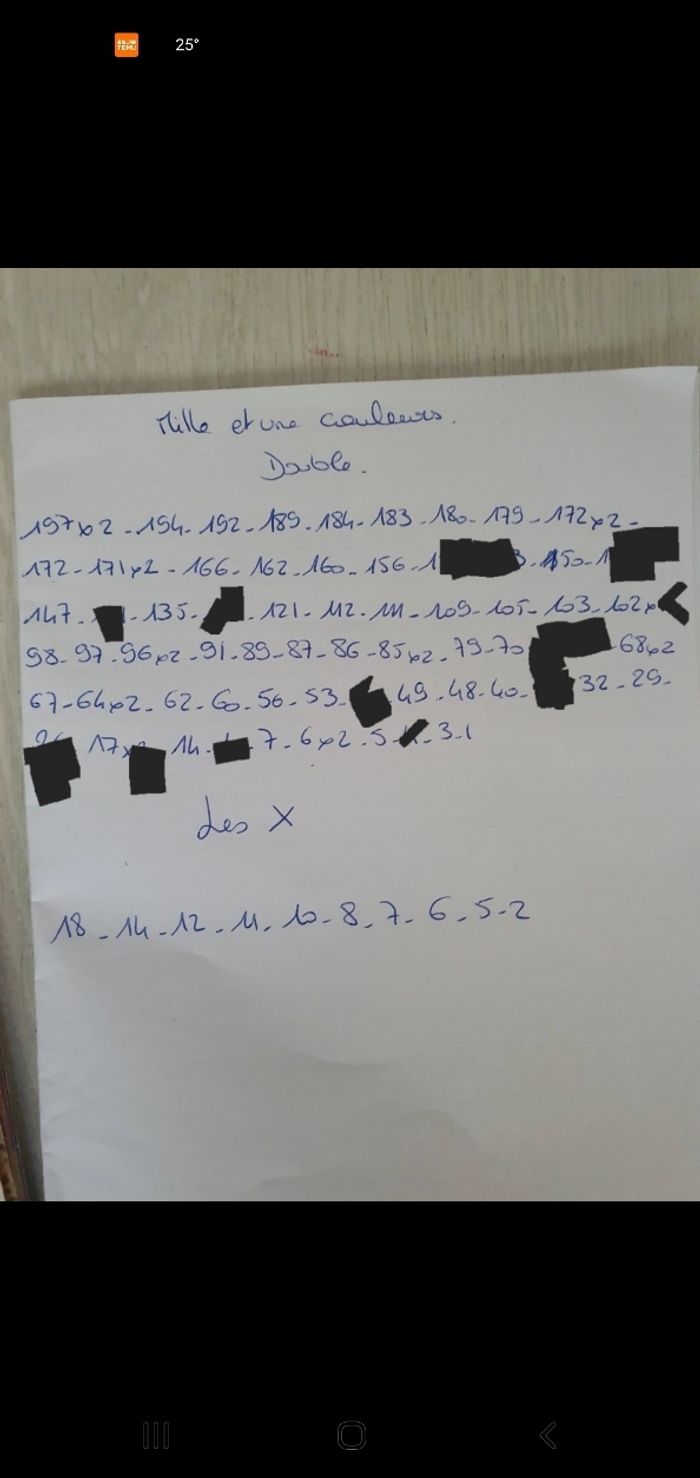 TEMU 25°
Mille et une couleurs.
Double.
197x2 - 194 - 192 - 189 - 184 - 183 - 180 - 179 - 172x2 -
172 - 171x2 - 166 - 162 - 160 - 156 - 150 -
147 - 135 - 121 - 112 - 111 - 109 - 105 - 103 - 102x
98 - 97 - 96x2 - 91 - 89 - 87 - 86 - 85x2 - 79 - 70 68x2
67 - 64x2 - 62 - 60 - 56 - 53 - 49 - 48 - 40 - 32 - 29 -
17x 14 - 7 - 6x2 - 5 - 3 - 1
Les X
18 - 14 - 12 - 11 - 10 - 8 - 7 - 6 - 5 - 2